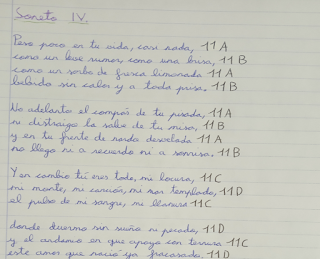 Soneto IV.
Peso poco en tu vida, casi nada, 11A
como un leve rumor, como una brisa, 11B
como un sorbo de fresca limonada 11A
bebido sin calor y a toda prisa. 11B
No adelanto el compás de tu pisada, 11A
ni distraigo la salsa de tu misa, 11B
y en tu frente de nardo desvelada 11A
no llego ni a recuerdo ni a sonrisa. 11B
Y en cambio tú eres todo, mi locura, 11C
mi monte, mi canción, mi mar templado, 11D
el pulso de mi sangre, mi llanura 11C
donde duermo sin sueño ni pecado, 11D
y el andamio en que apoyo con ternura 11C
este amor que nació ya fracasado. 11D